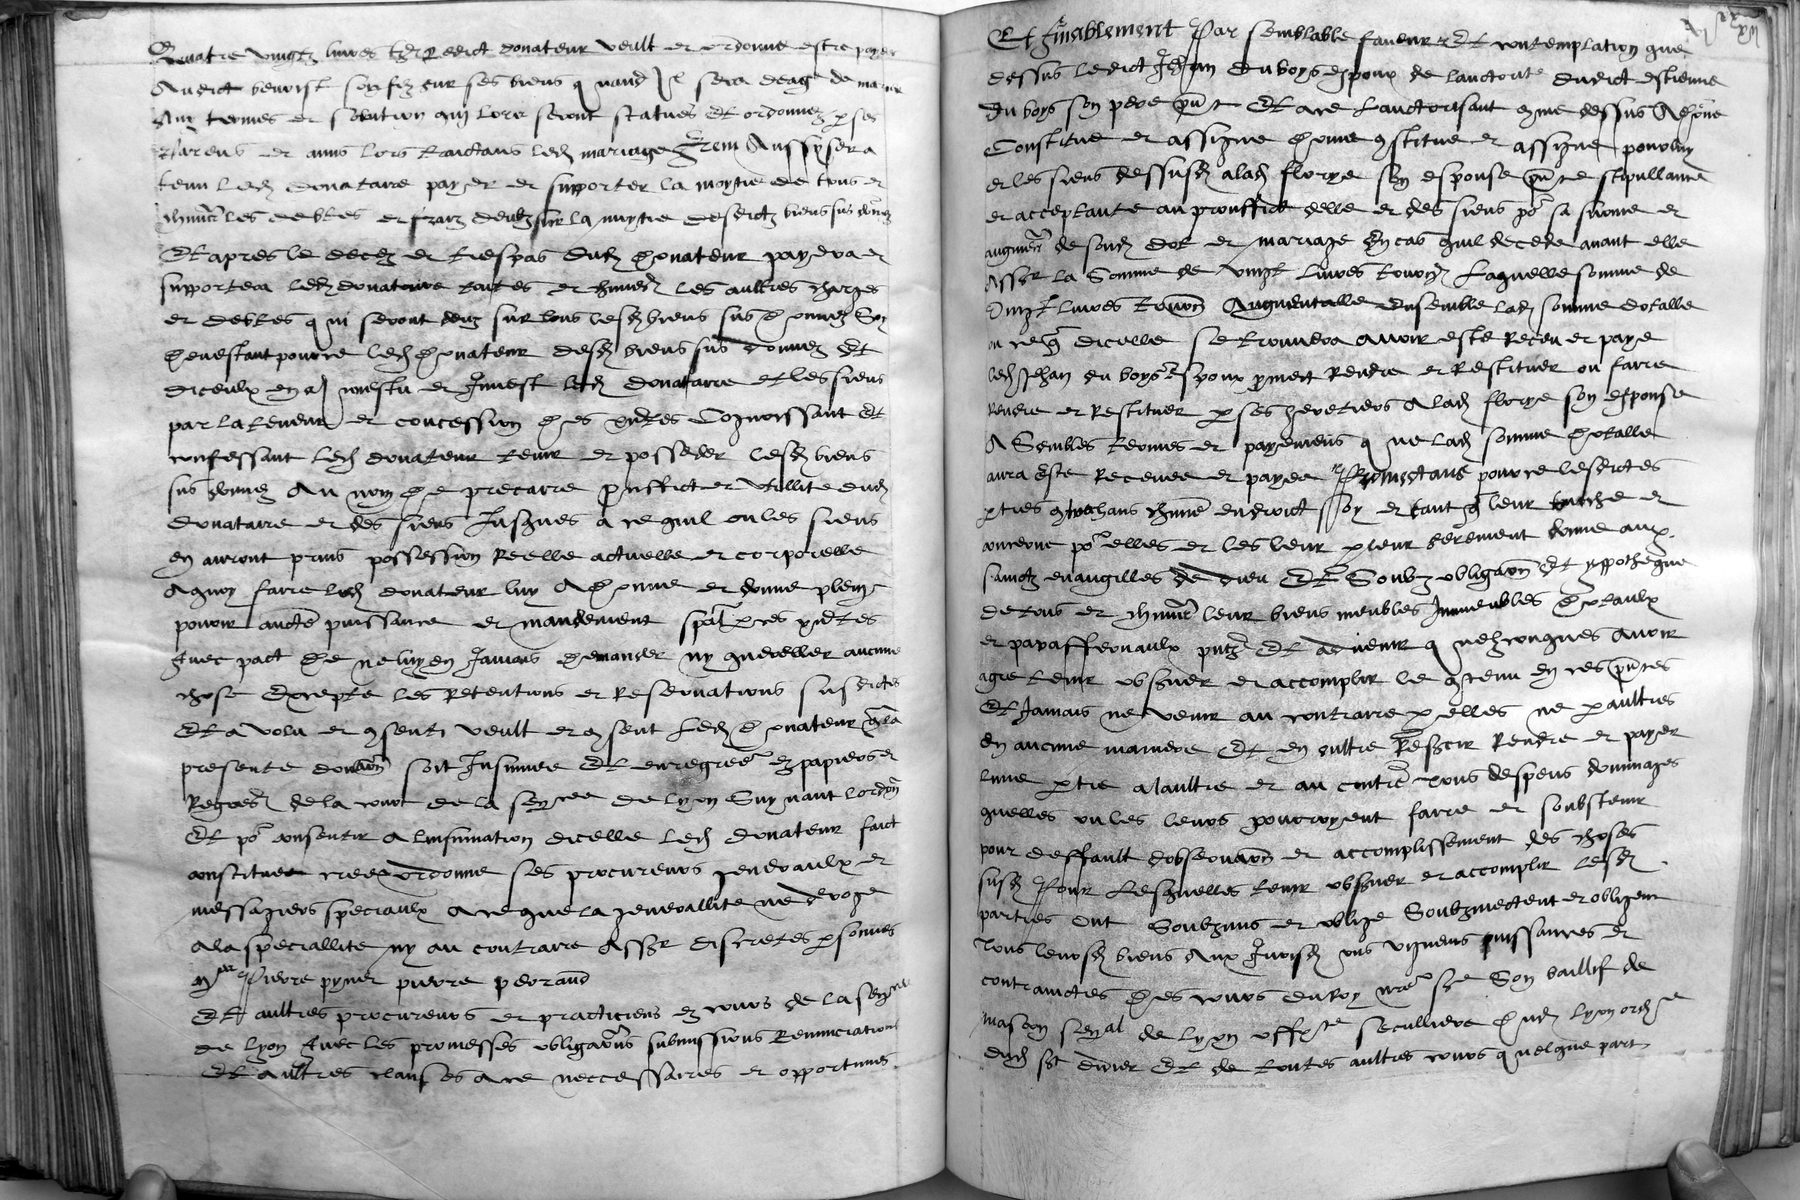 quatre vingtz livres ledict donateur veult et ordonne estre payer
Audict benoist son filz sur ses biens quand Il sera deage de marier
Aux termes et solution qui lors seront statues Et ordonnez p ses
parens et amis lors traictans led mariage Item Aussy sera
tenu led donataire payer et supporter la moytie de tous et
chmcs les debtes et fraiz deuz sur la moytie desdictz biens sus donez
Et apres le decez et trespas dud donateur payera et
supportera led donataire toutes et chmes les aultres charges
et debtes qui seront deuz sur tous lesd biens sus donnez Soy
devestant pource led donateur desd biens sus donnez Et
diceulx en a investu et Invest led donataire et les siens
par la teneur et concession des pntes Cognoissant Et
confessant led donateur tenir et posseder lesd biens
sus donnez Au nom de precaire prouffict et utillite dud
donataire et des siens Jusques a ce quil ou les siens
en auront prins possession Reelle actuelle et corporelle
Aquoy faire led donateur luy A donne et donne plein
povoir aucte puissance et mandement spal p ces pntes
Avec pact de ne luy en Jamais demander ny quereller aucune
chose Excepte les Retentions et Reservations susdictes
Et a volu et consenty veult et consent Led donateur q la
presente donaon soit Insinuee Et enregree ez papiers et
Regres de la court de la senee de Lyon Suyvant lordon
Et po consentir a linsinuation dicelle led donateur faict
constitue cree ordonne ses procureurs generaulx et
messagiers speciaulx a ce que la generallite ne deroge
a la speciallite ny au contraire Asscr discretes psonnes
mes Pierre pyner pierre peoraud
Et aultres procureurs et practiciens ez cours de la senee
de Lyon Avec les promesses obligaons submissions Renunciations
Et Aultres clauses a ce neccessaires et opportunes
Et finablement Par semblable faveur Et contemplation que
dessus ledict Jehan Duboys espoux de lauctorite dudict estienne
du boys son pere pnt Et a ce Lauctorisant come dessus A done
Constitue et assigne donne constitue et assigne pour luy
et les siens dessusd a lad florye son espouse pnte stipullante
et acceptante au prouffict delle et des siens po sa survie et
augment de sond dot et mariage En cas quil decede avant elle
Asscr la Somme de vingt livres tournois Laquelle somme de
vingt livres tourn Augmentalle ensemble lad somme dotalle
ou ce q dicelle se trouvera avoir este Receu et paye
led Jehan du boys espoux promect Rendre et Restituer ou faire
Rendre et Restituer p ses heretiers A lad florye son espouse
A Sembles termes et payemens que lad somme dotalle
aura este Receue et payee Promectans pource lesdictes
pties contrahans chmne endroict Soy et tant q leur touche et
concerne po elles et les leur p leur serement donne aux
sainctz evangilles de dieu Et Soubz obligaon Et yppotheque
de tous et chmcs leur biens meubles Immeubles dotaulx
et paraffernaulx pntz Et advenir quelzconques avoir
agre tenir observer et accomplir le contenu en ces pntes
Et Jamais ne venir au contraire p elles ne p aultres
En aucune maniere Et en oultre Reffcir Rendre et payer
lune ptie a laultre et au contre Tous despens dommages
quelles ou les leurs pourroyent faire et soubstenir
pour deffault dobservaon et accomplissement des choses
susd Pour Lesquelles tenir observer et accomplir Lesd
parties Ont Soubzmis et oblige Soubzmectent et obligent
Tous leursd biens Aux Juris vigueurs puissances et
contrainctes des cours du Roy nre sre Son baillif de
mascon senal de Lyon offte seculliere dud Lyon ordre
dud st didier Et de toutes aultres cours quelque part